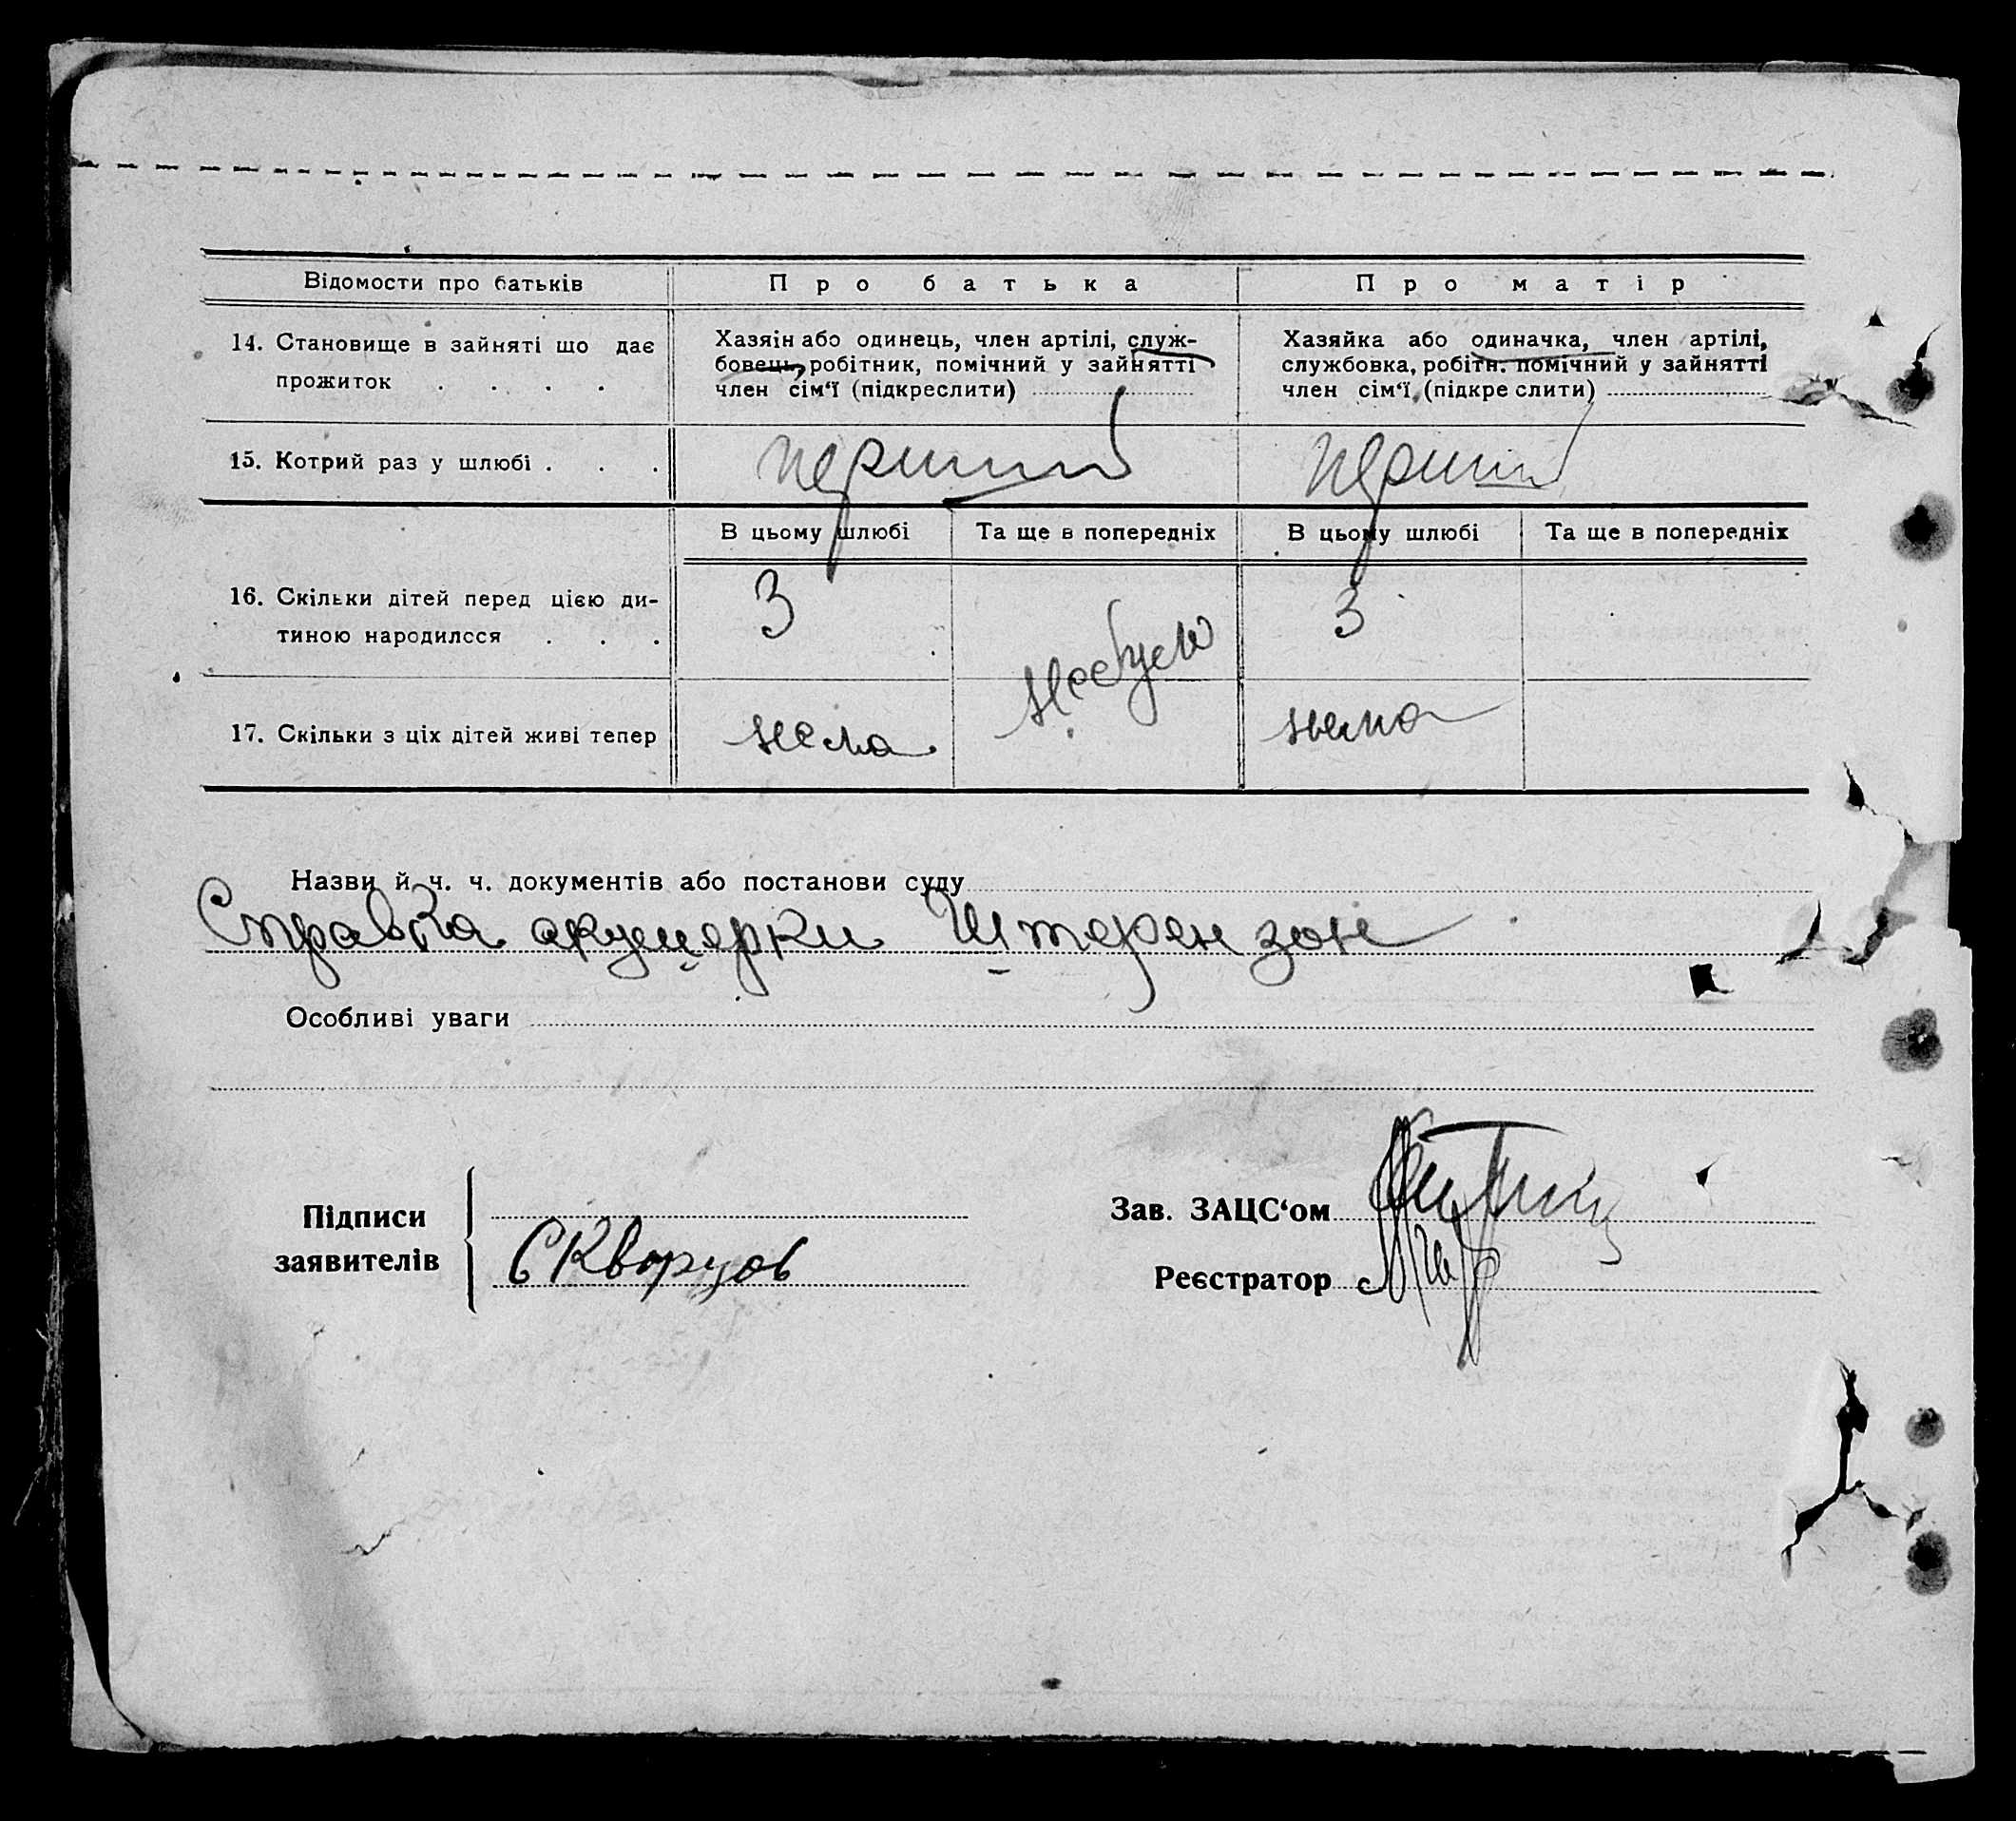 Відомости про батьків
Про батька
Про матір
14. Становище в зайняті що дає
прожиток . . . .
Хазяїн або одинець, член артілі, служ-
бовець, робітник, помічний у зайнятті
член сім‘ї (підкреслити)
Хазяйка або одиначка, член артілі,
службовка, робітн. помічний у зайнятті
член сім‘ї (підкреслити)
15. Котрий раз у шлюбі . . .
перший
перший
В цьому шлюбі
Та ще в попередніх
В цьому шлюбі
Та ще в попередніх
16. Скільки дітей перед цією ди-
тиною народилося . . .
3
Не було
3
17. Скільки з ціх дітей живі тепер
нема
нема
Назви й ч. ч. документів або постанови суду
Справка акушерки Штерензон
Особливі уваги
Підписи
заявителів
Скворцов
Зав. ЗАЦС‘ом
Реєстратор